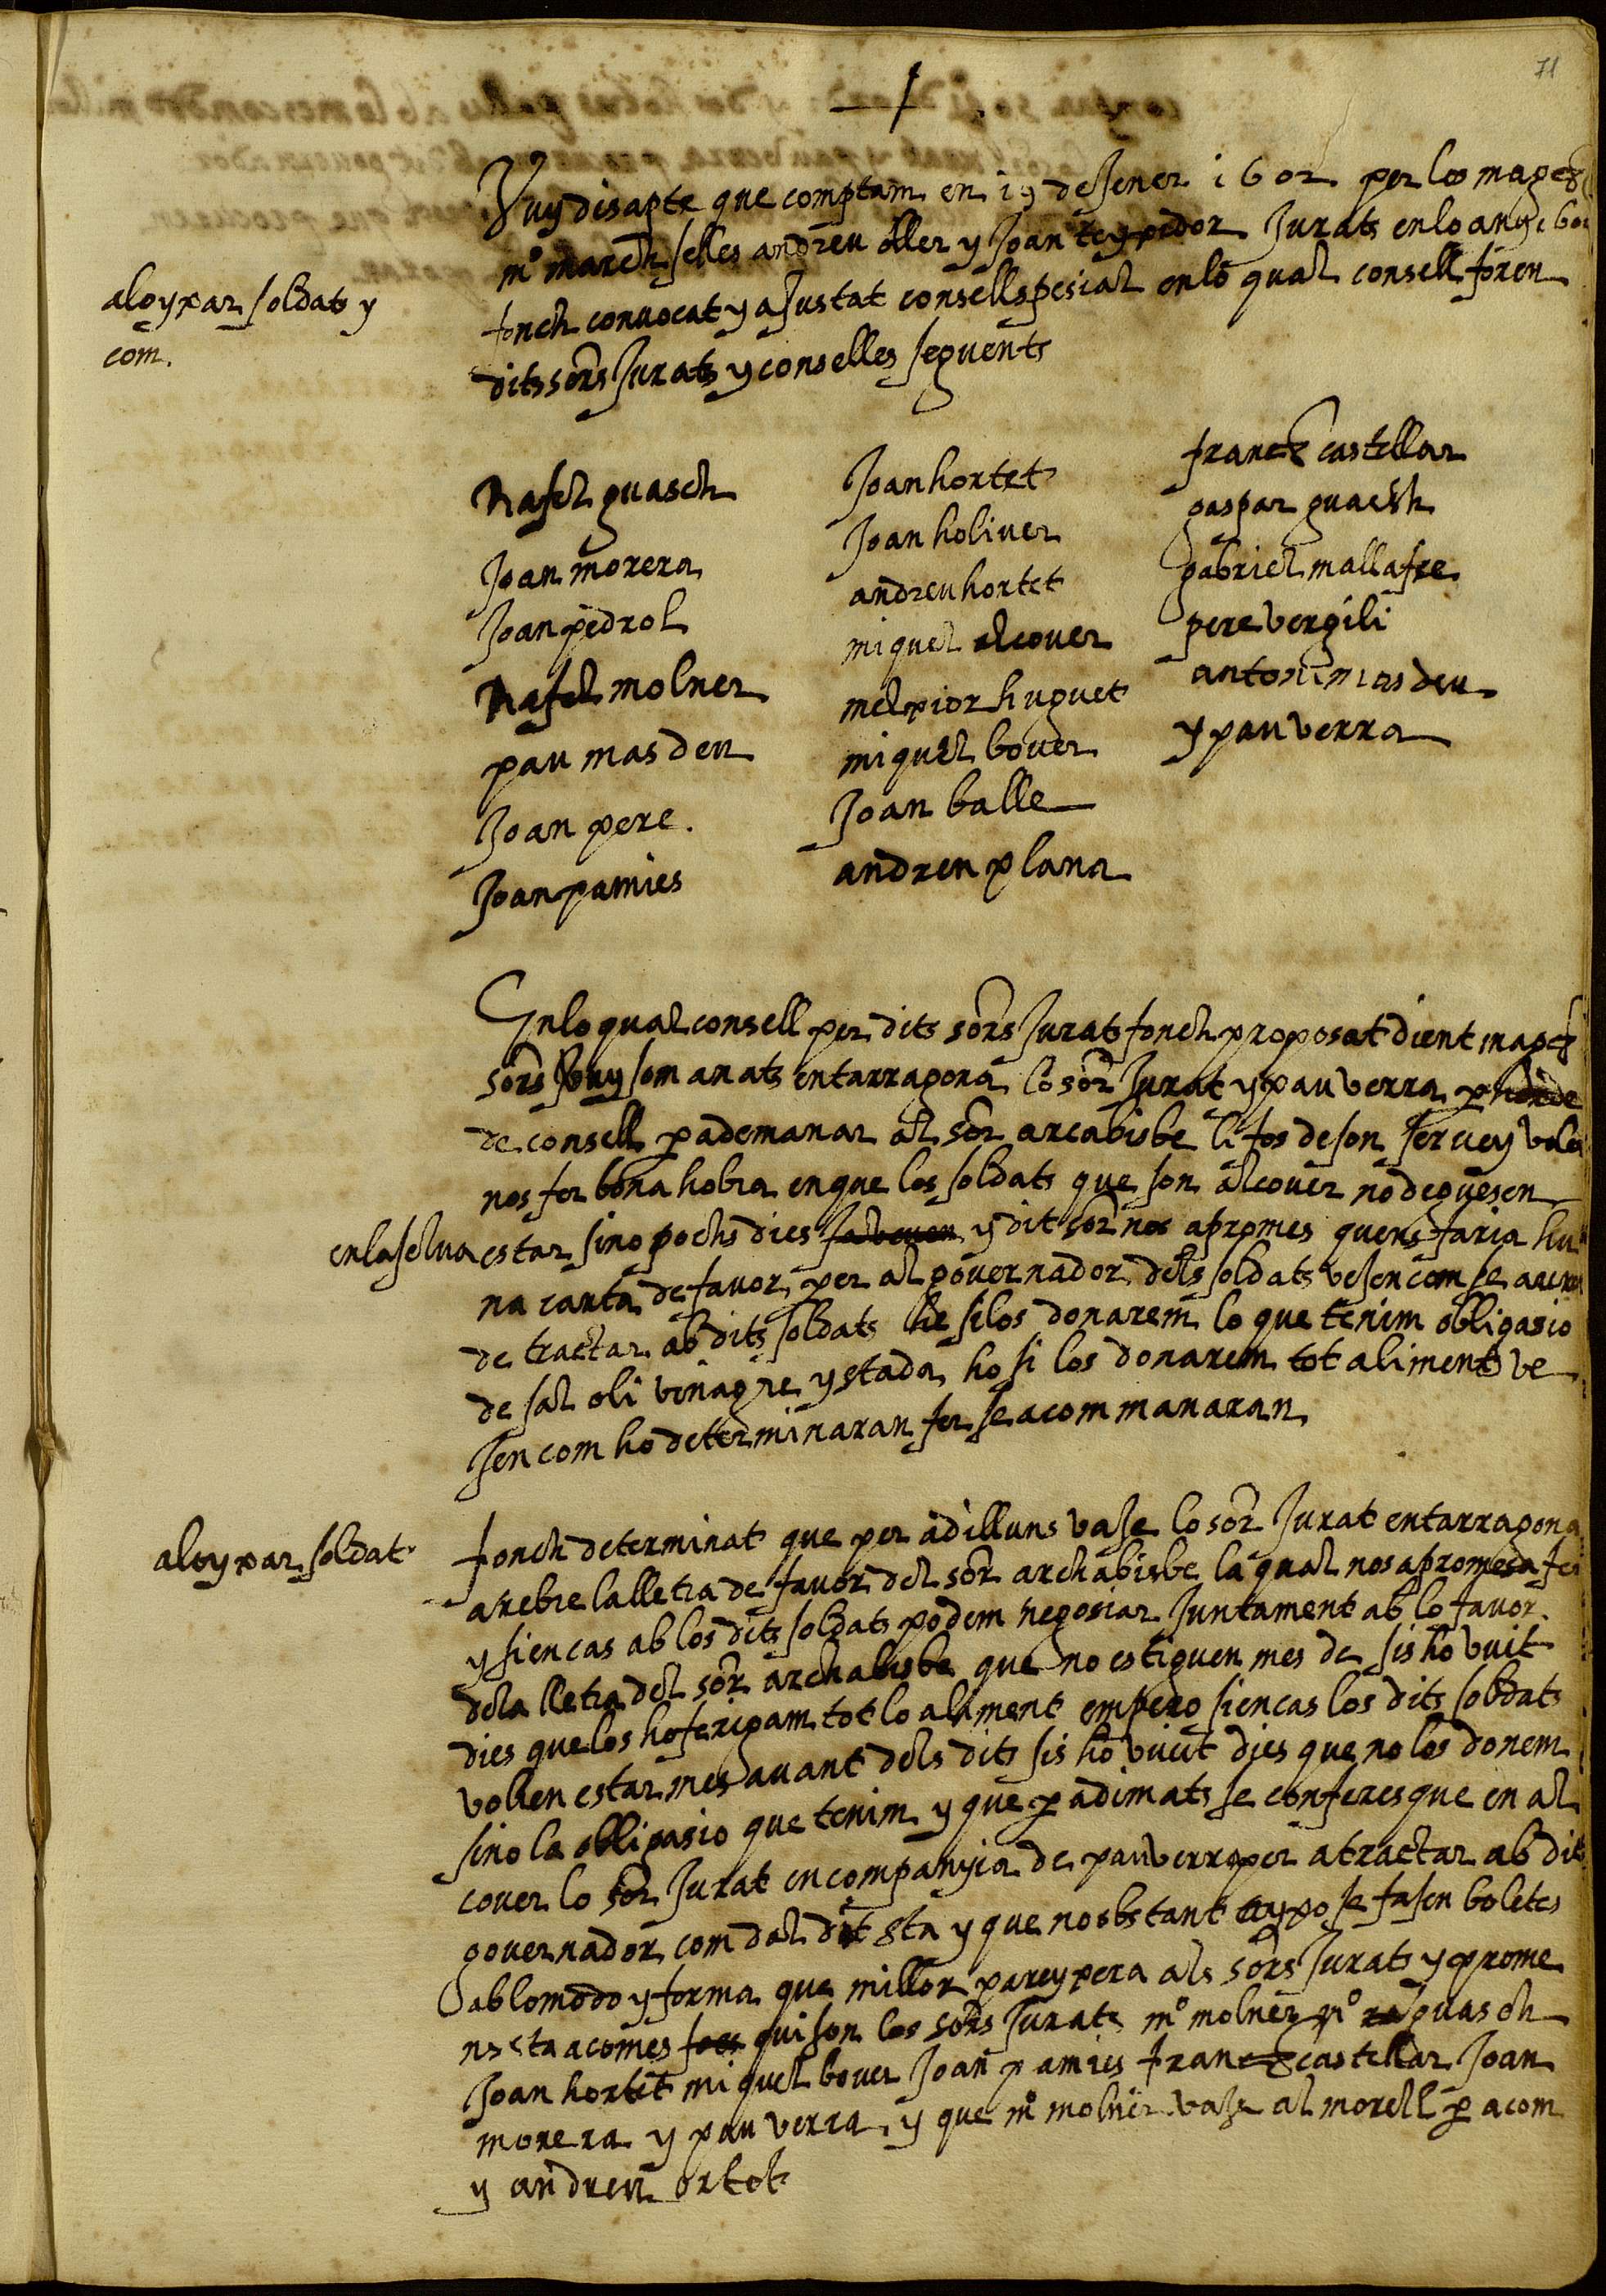 71
Vuy disapte que comptam en 19 de Jener 1602 per los mag.chs
m.o march selles andreu oller y Joan texpedor Jurats en lo any 1601
fonch convocat y aJustat consell spesial en lo qual consell foren
dits sors Jurats y conselles seguents
alogar soldats y
com.
Rafel guasch
Joan morera
Joan pedrol
Rafel molner
pau masdeu
Joan pere.
Joan pamies
Joan hortet
Joan holiver
andreu hortet
miquel alcover
melgior huguet
miquel bover
Joan balle
andreu plana
franch castellar
gaspar guasch
gabriel mallafre
pere vergili
antoni masdeu
y pau verra
En lo qual consell per dits sors Jurats fonch proposat dient magchs
sors vuy som anats en tarragona lo sor Jurat y pau verra p horde
de consell p ademanar al sor arcabisbe li fos de son servey voler
nos fer bona hobra en que los soldats que son alcover no deguesen
en la selva estar sino pochs dies y dit sor nos apromes quens faria hu
na carta de favor per al governador dels soldats vesen com se auran
de tractar ab dits soldats he si los donarem lo que tenim obligasio
de sal oli vinagre y stada ho si los donarem tot aliment ve
Jen com ho determinaran fer se acommanaran
alogar soldat
fonch determinat que per adilluns vaJe lo sor Jurat en tarragona
arebre la lletra de favor del sor archabisbe la qual nos apromesa fer
y si en cas ab los dits soldats podem negosiar Juntament ab lo favor
dela lletra del sor archabisbe que no estiguen mes de sis ho vuit
dies que los hoferigam tot lo aliment empero si en cas los dits soldats
vollen estar mes avant dels dits sis ho vuit dies que no los donem
sino la obligasio que tenim y que p adimats se conferesque en al
cover lo sor Jurat en companyia de pau verra per atractar ab dit
governador com dal dit sta y que no obstant axo se fasen boletes
ab lo modo y forma que millor pareyxera als sors Jurats y prome
ns sta acomes qui son los sors Jurats m.o molner m.o guasch
Joan hortet miquel bover Joan pamies franch castellar Joan
morera y pau verra, y que m.o molner vaJe al morell p acom
y andreu ortet